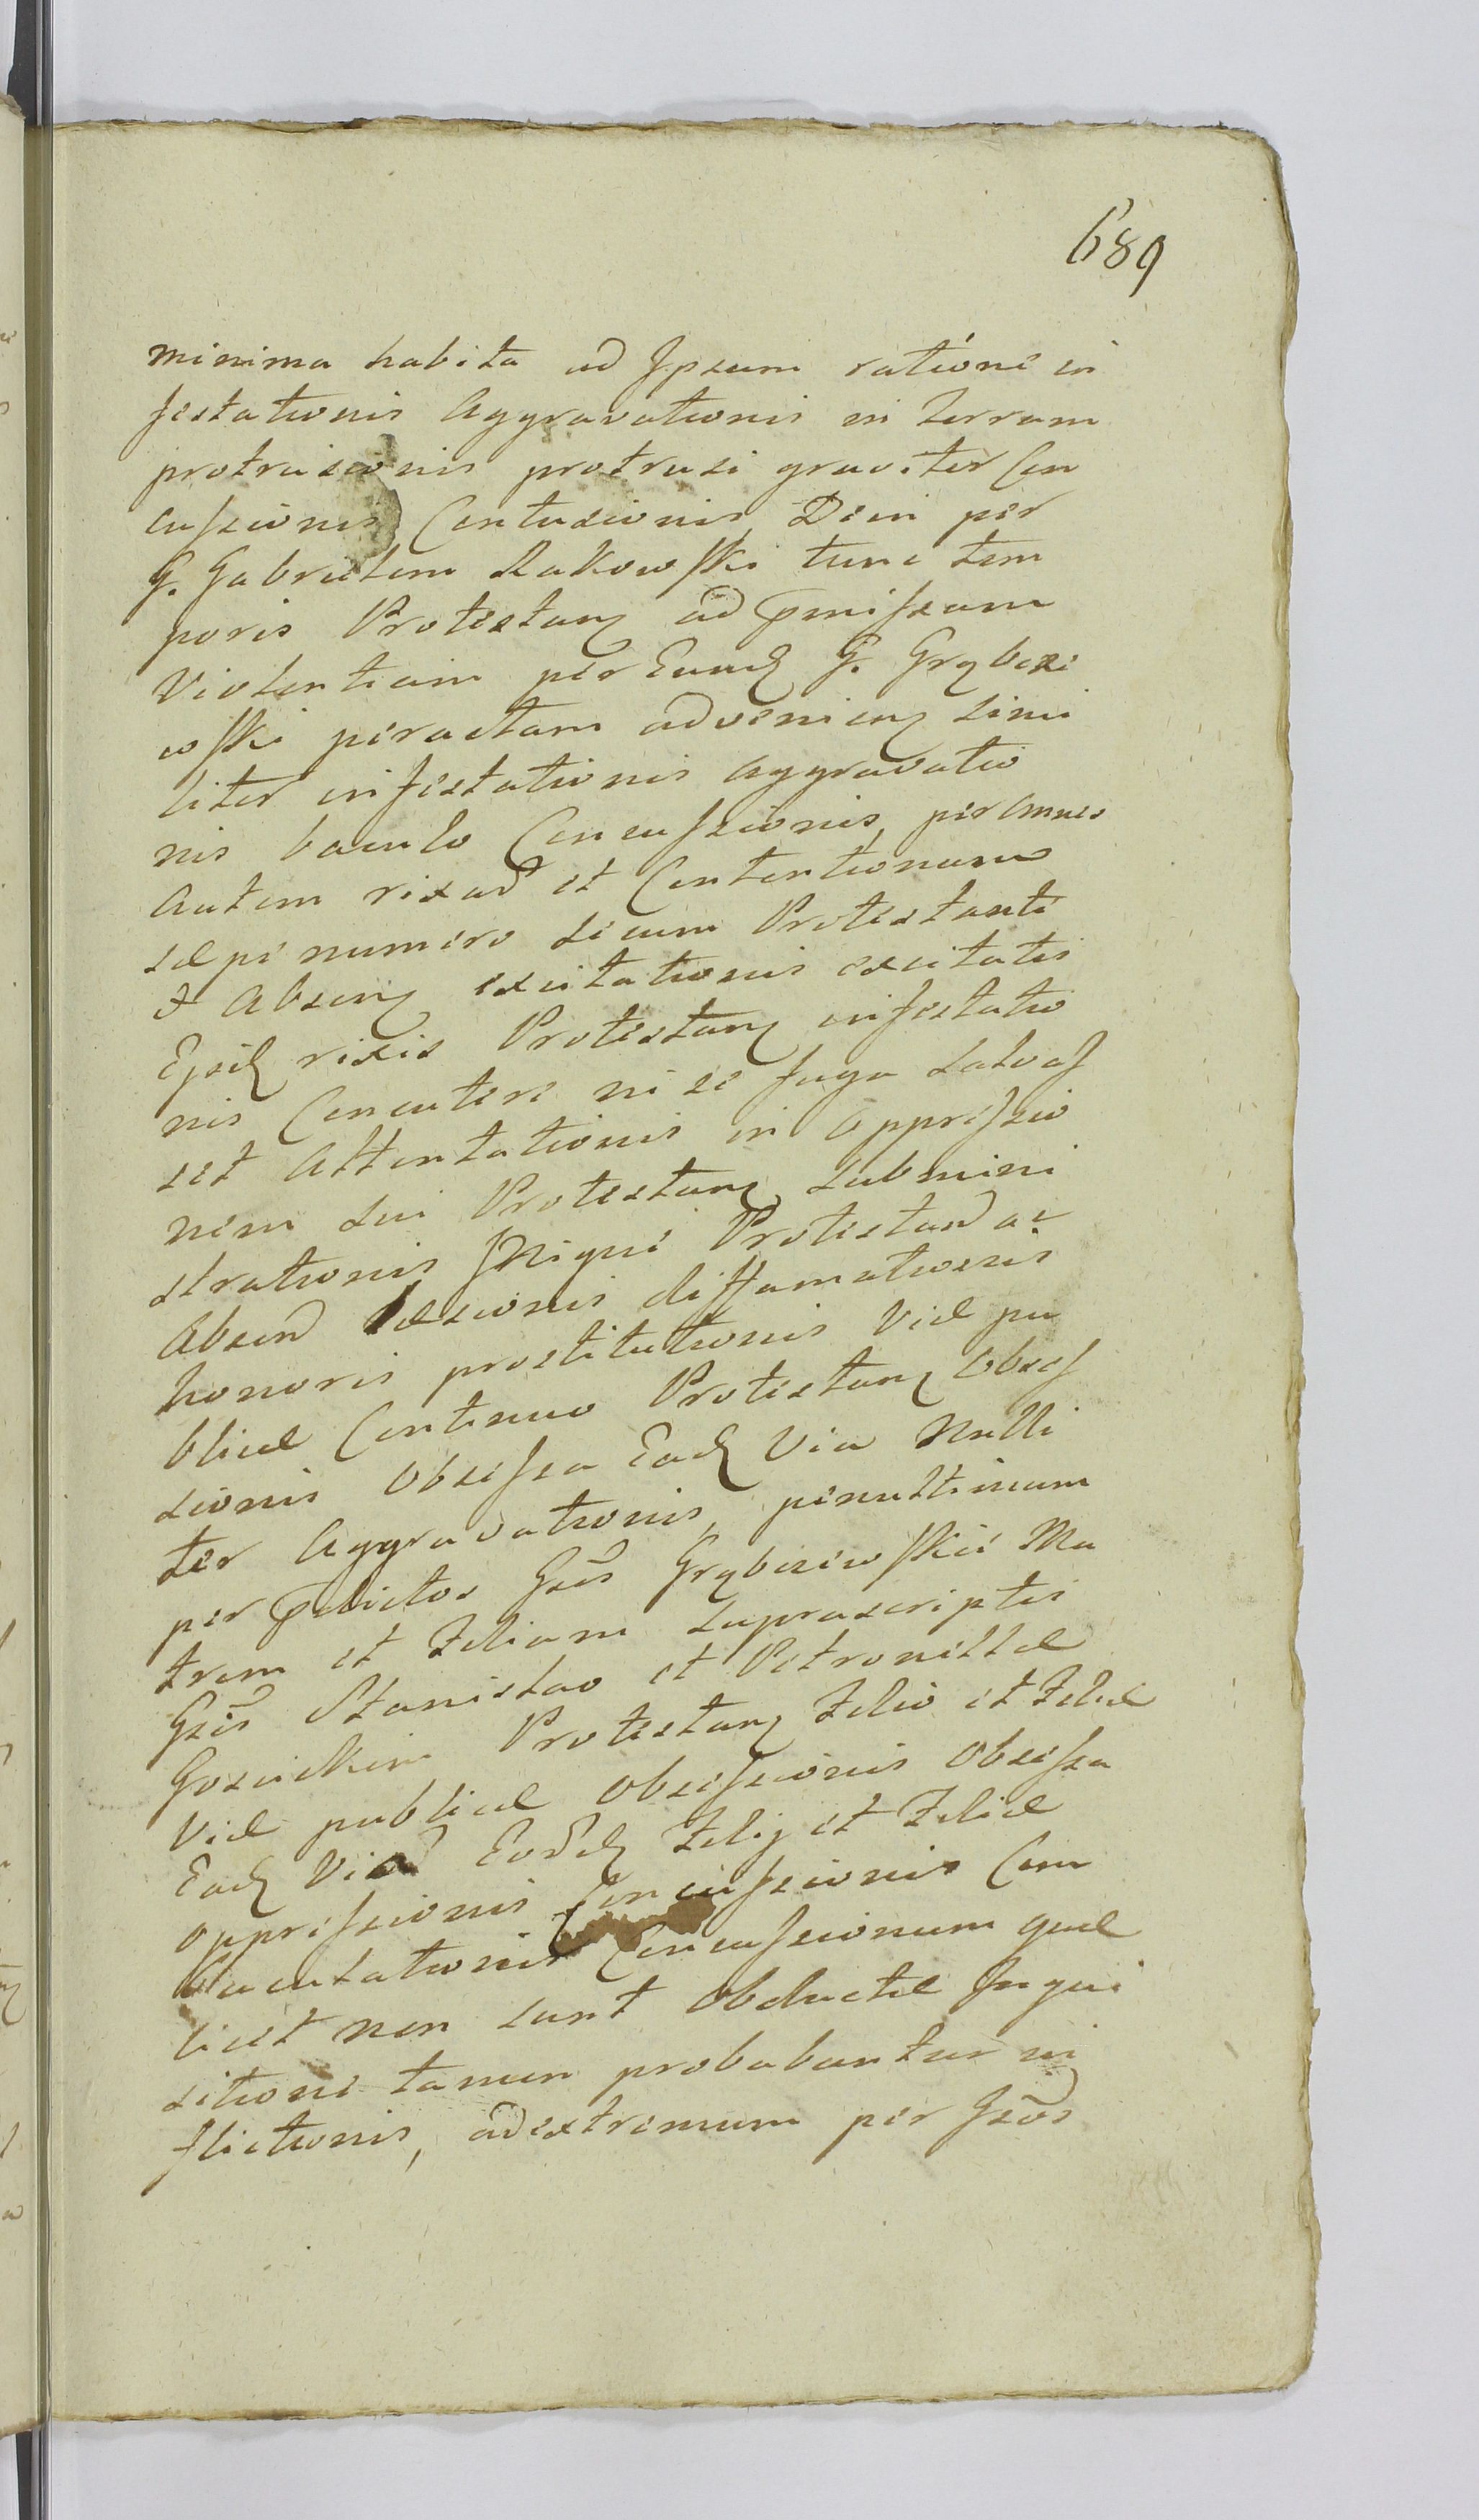 689
minima habita ad Ipsum ratione in
festationis Aggravationis in terram
protrusionis protrusi graviter Con
cussionis Contusionis, Dein per
G. Gabrielem Rakowski tunc tem
poris Protestang ad pmissam
Violentiam per Eundg G. Grąbczе
wski peractam advenieng simi
liter infestationis Aggravatio
nis baculo Concussionis, per omnes
Autem rixas et Contentionum
sæpe numero secum Protestante
et Abseng excitationis excitatis
Ejsdg rixis Protestang infestatio
nis Concutere ni se fuga salvas
set Attentationis in Oppressio
nem sui Protestang submini
strationis Niqui Protestand ac
Absend læsionis diffamationis
honoris prostitutionis Viæ pu
blicæ Continuo Protestang Obses
sionis Obsessa Eadg Via Nulli
ter Aggravationis, penultimum
per pdictos Gsōs Grąbczewskie Ma
trem et Filiam suprascriptis
Gsīs Stanislao et Petronillæ
Protestang Filio et Filiæ
Viæ publicæ Obsessionis Obsessa
Eadg Via Eordg Filij et Filiæ
Oppressionis Concussionis Con
Concussionum quæ
licet non sunt Obductæ Inqui
sitione tamen probabuntur in
flictionis, ad extremum per Gsōs